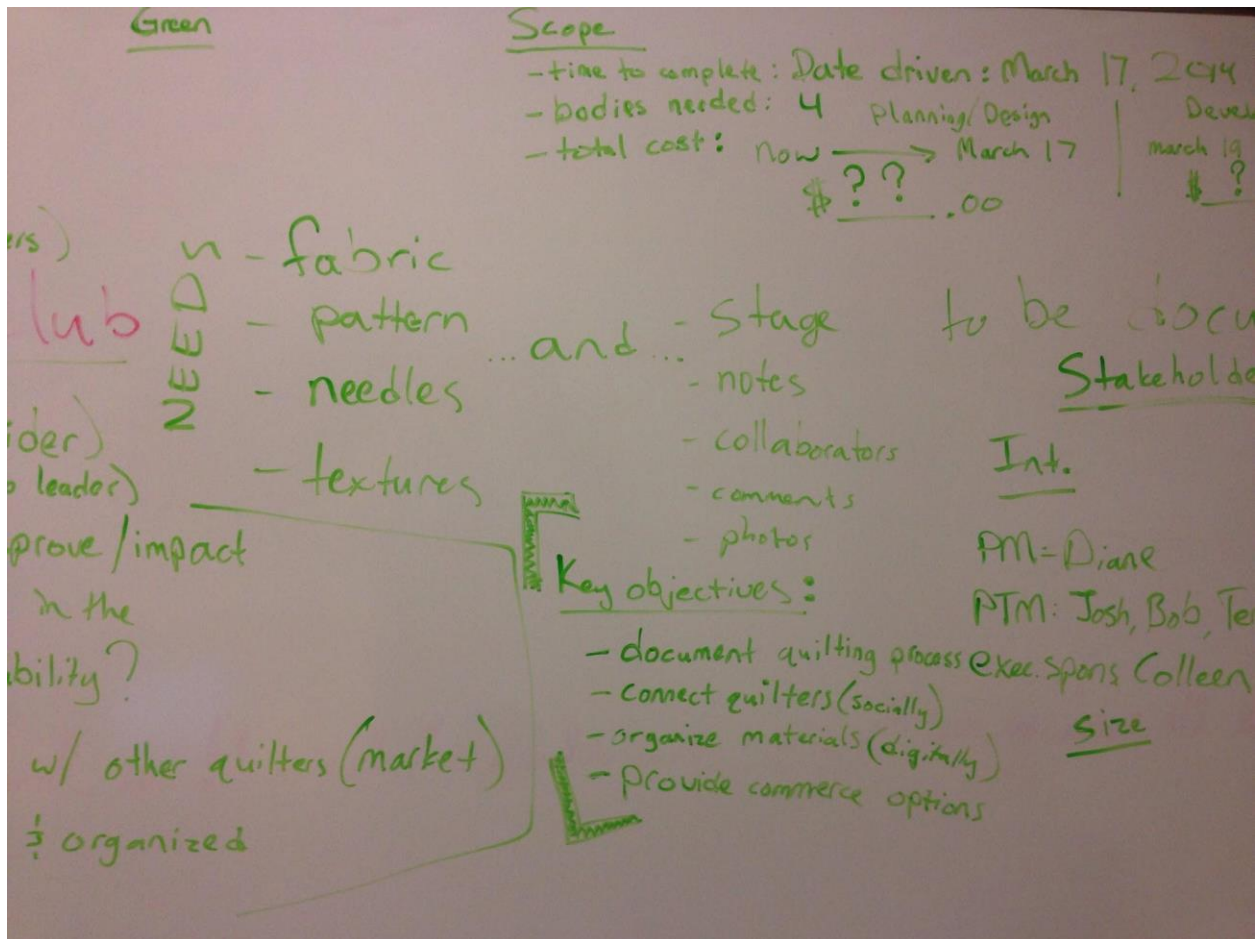 Green
Scope
- time to complete: Date driven: March 17, 2014
- bodies needed: 4
Planning/Design
- total cost: now → March 17
$ ? ? .00
Devel
march 19
$ ?
ers)
lub
NEED
- fabric
- pattern
- needles
- textures
...and...
- stage
- notes
- collaborators
- comments
- photos
to be docu
Stakeholde
Int.
PM = Diane
PTM: Josh, Bob, Te
exec. spons Colleen
size
ider)
o leader)
prove/impact
in the
bility?
w/ other quilters (market)
& organized
Key objectives:
- document quilting process
- connect quilters (socially)
- organize materials (digitally)
- provide commerce options